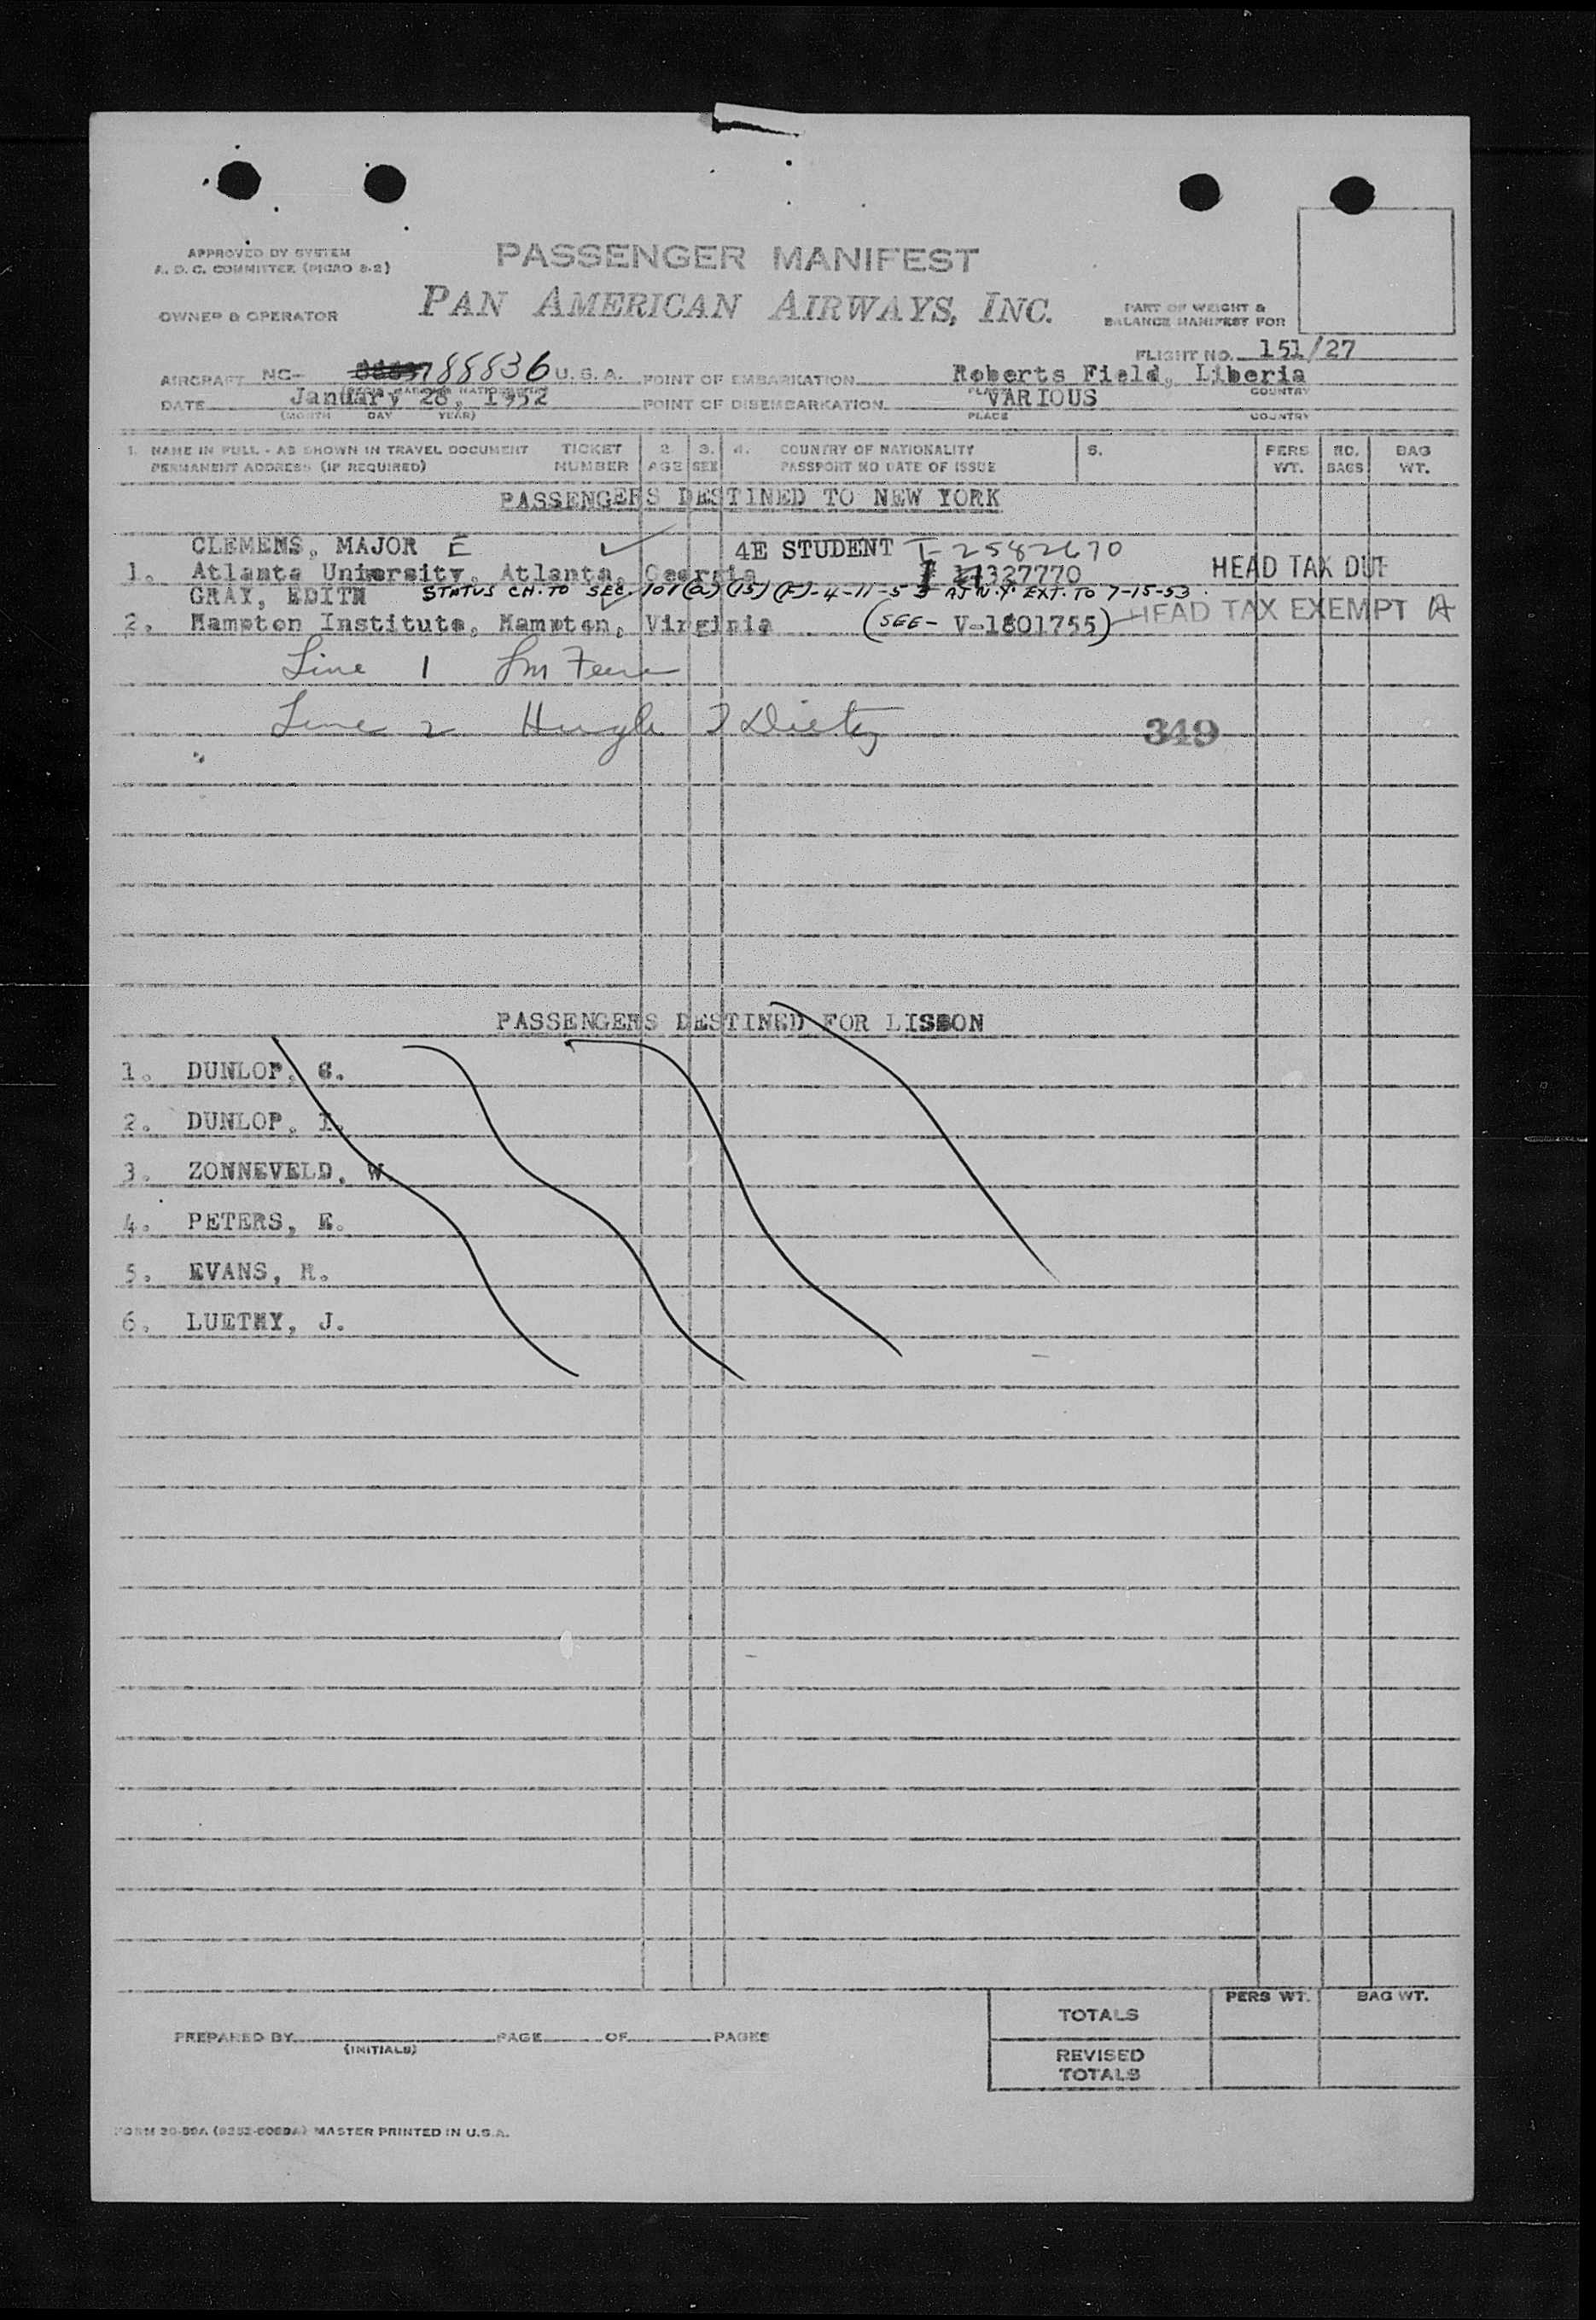 APPROVED BY SYSTEM
A. D. C. COMMITTEE (PICAO 8-2)
PASSENGER MANIFEST
OWNER & OPERATOR
PAN AMERICAN AIRWAYS, INC.
PART OF WEIGHT &
BALANCE MANIFEST FOR
FLIGHT NO. 151/27
AIRCRAFT NC- 88836 U. S. A. POINT OF EMBARKATION Roberts Field, Liberia
PLACE COUNTRY
DATE January 28, 1952 POINT OF DISEMBARKATION VARIOUS
(MONTH DAY YEAR) PLACE COUNTRY
1. NAME IN FULL - AS SHOWN IN TRAVEL DOCUMENT TICKET 2. 3. 4. COUNTRY OF NATIONALITY 5. PERS. NO. BAG
PERMANENT ADDRESS (IF REQUIRED) NUMBER AGE SEX PASSPORT NO DATE OF ISSUE WT. BAGS WT.
PASSENGERS DESTINED TO NEW YORK
CLEMENS, MAJOR E 4E STUDENT T-2582670
1. Atlanta University, Atlanta, Georgia 327770 HEAD TAX DUE
GRAY, EDITH STATUS CH. TO SEC. 101(a)(15)(F)-4-11-53 AT N.Y. EXT. TO 7-15-53.
2. Hampton Institute, Hampton, Virginia (SEE- V-1801755) HEAD TAX EXEMPT A
Line 1
Line 2 Hugh J Dietz 349
PASSENGERS DESTINED FOR LISBON
1. DUNLOP, G.
2. DUNLOP, I.
3. ZONNEVELD, W.
4. PETERS, E.
5. EVANS, H.
6. LUETHY, J.
PERS WT. BAG WT.
TOTALS
PREPARED BY PAGE OF PAGES
(INITIALS)
REVISED
TOTALS
MASTER PRINTED IN U.S.A.